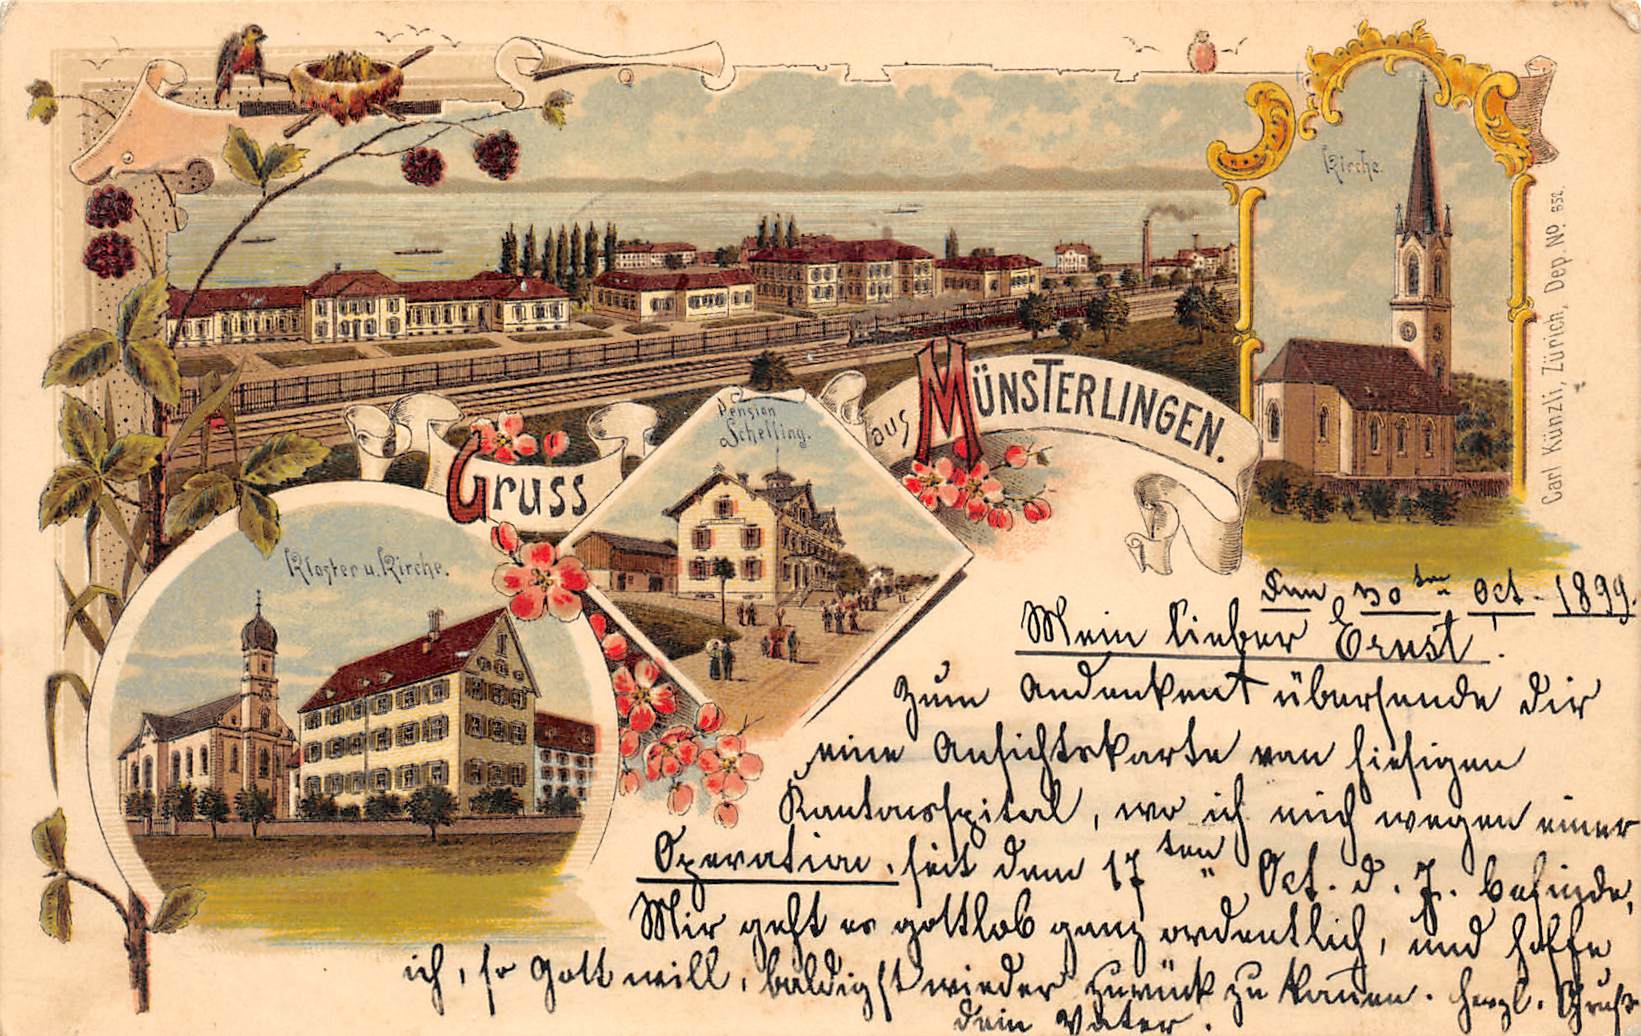 Gruss aus Münsterlingen.
Kirche.
Pension
Schelling.
Kloster u. Kirche.
Carl Künzli, Zürich, Dep. No. 652.
Den 30ten Oct. 1899.
Mein lieber Ernst!
Zum Andenken übersende dir
eine Ansichtskarte von hiesigen
Kantonsspital, wo ich mich wegen einer
Operation, seit dem 17ten Oct. d. J. befinde,
Mir geht es gottlob ganz ordentlich, und hoffe
ich, so Gott will, baldigst wieder zurück zu kommen. Herzl. Gruß
dein Vater.